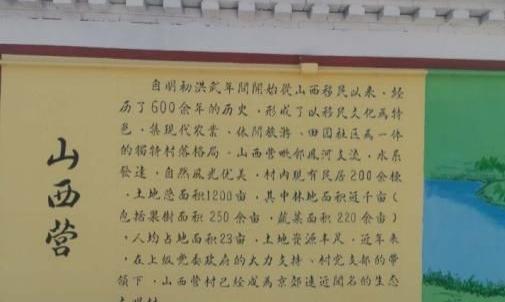 山西营
自明初洪武年間開始從山西移民以来，经
历了600余年的历史，形成了以移民文化為特
色，集现代农業、休閒旅游、田园社区為一体
的獨特村落格局。山西营毗邻凤河支流，水系
發達，自然风光优美，村内现有民居200余棟
，土地总面积1200亩，其中林地面积近千亩（
包括果樹面积250余亩，蔬菜面积220余亩）
，人均占地面积23亩，土地资源丰足。近年来
，在上级党委政府的大力支持、村党支部的带
领下，山西营村已经成為京郊遠近聞名的生态